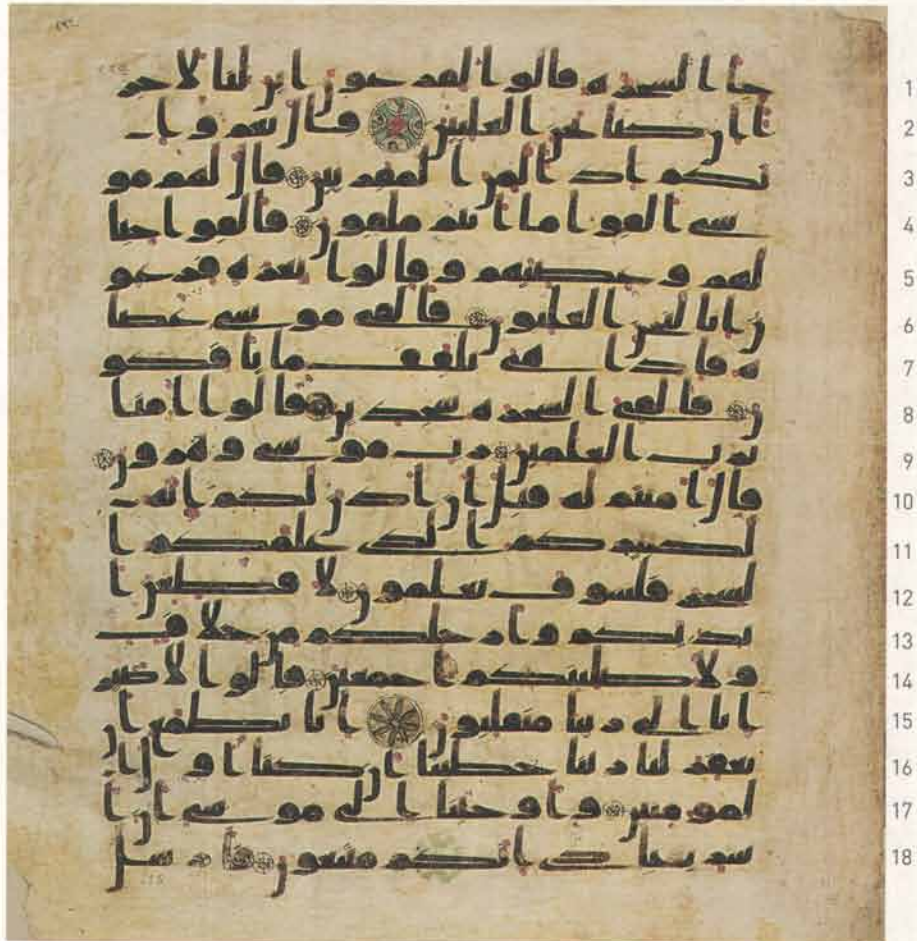 جا السحرة قالوا لفرعون اين لنا لاجر 1
ا ان كنا نحن الغلبين قال نعم وا 2
نكم اذا لمن المقربين قال لهم مو 3
سى القوا ما انتم ملقون فالقوا حبا 4
لهم وعصيهم وقالوا بعزة فرعو 5
ن انا لنحن الغلبون فالقى موسى عصا 6
ه فاذا هى تلقف ما يافكو 7
ن فالقى السحرة سجدين قالوا امنا 8
برب العلمين رب موسى وهرون 9
قال امنتم له قبل ان اذن لكم انه 10
لكبيركم الذى علمكم ا 11
لسحر فلسوف تعلمون لا قطعن ا 12
يديكم وارجلكم من خلاف 13
ولاصلبنكم اجمعين قالوا لا ضير 14
انا الى ربنا منقلبون انا نطمع ان 15
يغفر لنا ربنا خطينا ان كنا اول ا 16
لمومنين واوحينا الى موسى ان ا 17
سر بعبادى انكم متبعون فارسل 18